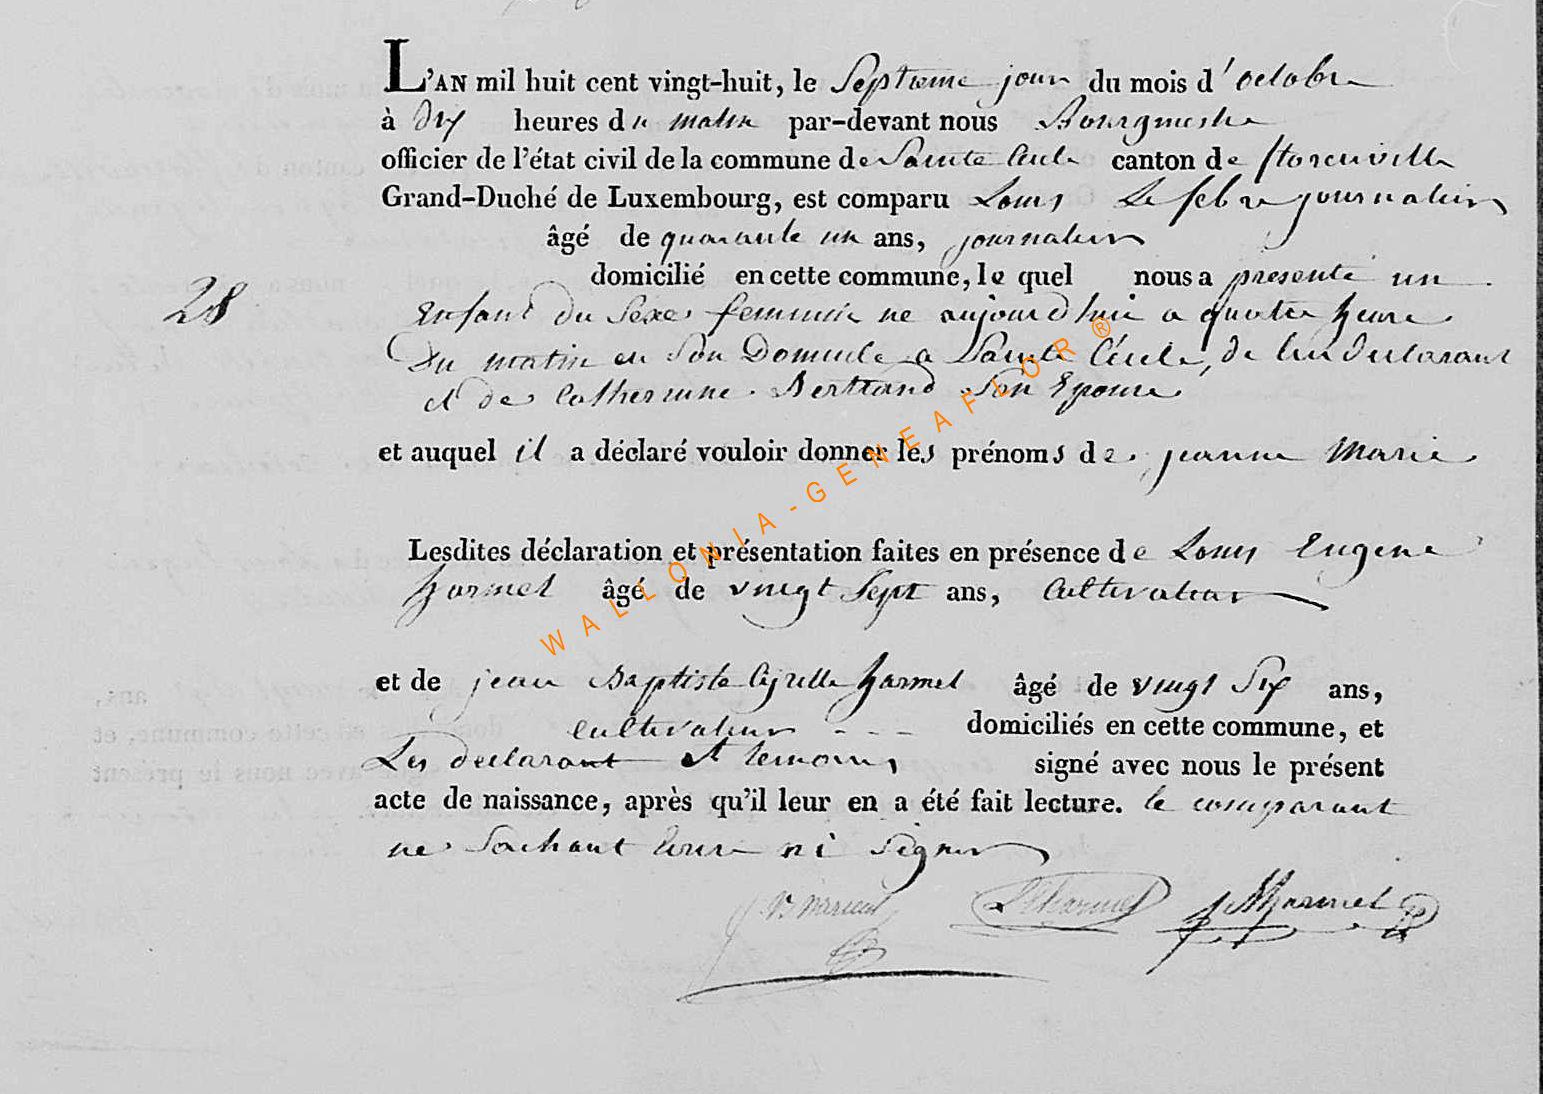 L'AN mil huit cent vingt-huit, le Septieme jour du mois d'octobre
à dix heures du matin par-devant nous Bourgmestre
officier de l'état civil de la commune de Sainte Cecile canton de florenville
Grand-Duché de Luxembourg, est comparu Louis Lefebvre journalier
âgé de quarante un ans, journalier
domicilié en cette commune, le quel nous a présenté un
28
Enfant du Sexe feminin né aujourd'hui a quatre heure
Du matin en Son Domicile a Sainte Cécile, de lui declarant
et de Catherinne Bertrand Son Epouse
et auquel il a déclaré vouloir donner les prénoms de jeanne Marie
Lesdites déclaration et présentation faites en présence de Louis Eugene
harmel âgé de vingt Sept ans, Cultivateur
et de jean Baptiste Cyrille harmel âgé de vingt Six ans,
cultivateur - - - domiciliés en cette commune, et
Les declarant et temoins signé avec nous le présent
acte de naissance, après qu'il leur en a été fait lecture. le comparant
ne Sachant Ecrire ni Signer
Harmel
WALLONIA-GENEAFLOR®